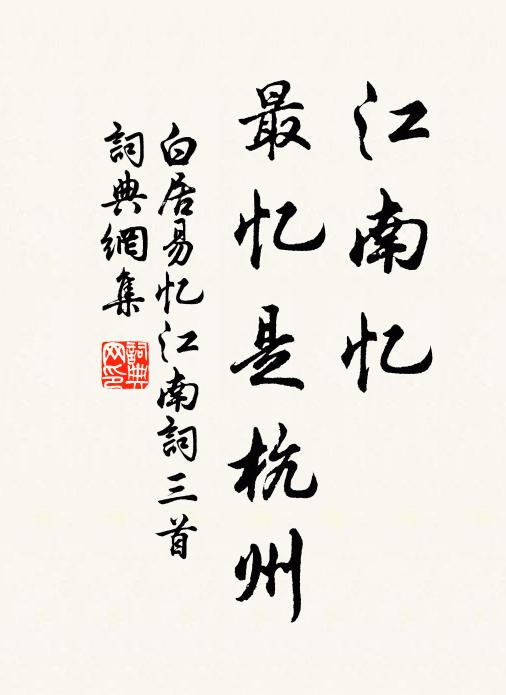 江南忆
最忆是杭州
白居易忆江南詞三首
詞典網集
詞典
网印